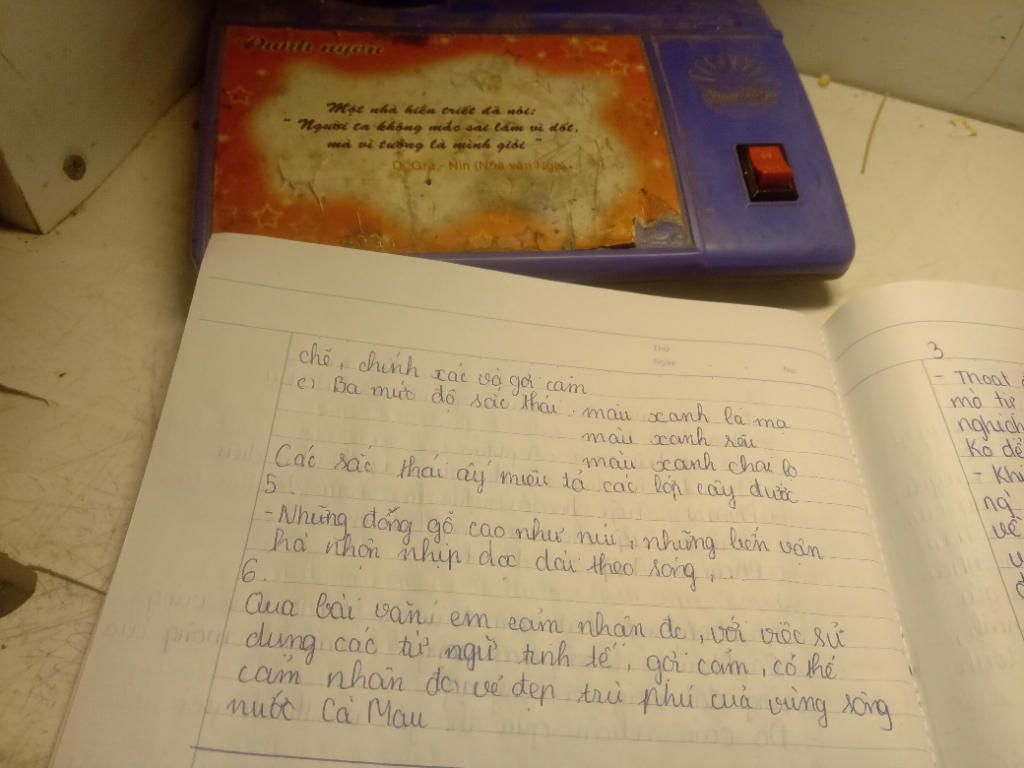 Danh ngôn
Một nhà hiền triết đã nói:
" Người ta không mắc sai lầm vì dốt,
mà vì tưởng là mình giỏi "
D. Gra - Nin (Nhà văn Nga)
Thứ
Ngày
No
chẽ, chính xác và gợi cảm
c) Ba mức độ sắc thái: màu xanh lá mạ
màu xanh rêu
màu xanh chai lọ
Các sắc thái ấy miêu tả các lớp cây đước
5.
- Những đống gỗ cao như núi, những bến vận
hà nhộn nhịp dọc dài theo sông,
6.
Qua bài văn, em cảm nhận đc, với việc sử
dụng các từ ngữ tinh tế, gợi cảm, có thể
cảm nhân đc vẻ đẹp trù phú của vùng sông
nước Cà Mau
3
- Thoat
mò từ
nghịch
Ko để
- Khi
ng'
về